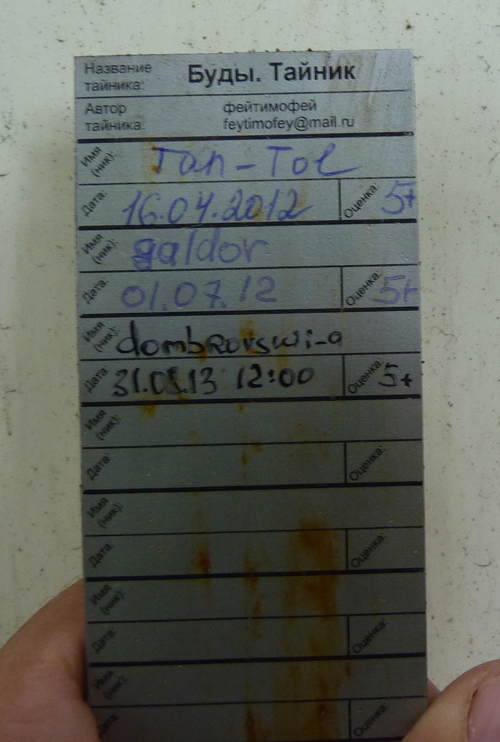 Название тайника: Буды. Тайник
Автор тайника: фейтимофей
feytimofey@mail.ru
Имя (ник): Tan-Tol
Дата: 16.04.2012 Оценка: 5+
Имя (ник): galdor
Дата: 01.07.12 Оценка: 5+
Имя (ник): dombrovswi-a
Дата: 31.03.13 12:00 Оценка: 5+
Имя (ник):
Дата: Оценка:
Имя (ник):
Дата: Оценка:
Имя (ник):
Дата: Оценка:
Имя (ник):
Дата: Оценка: